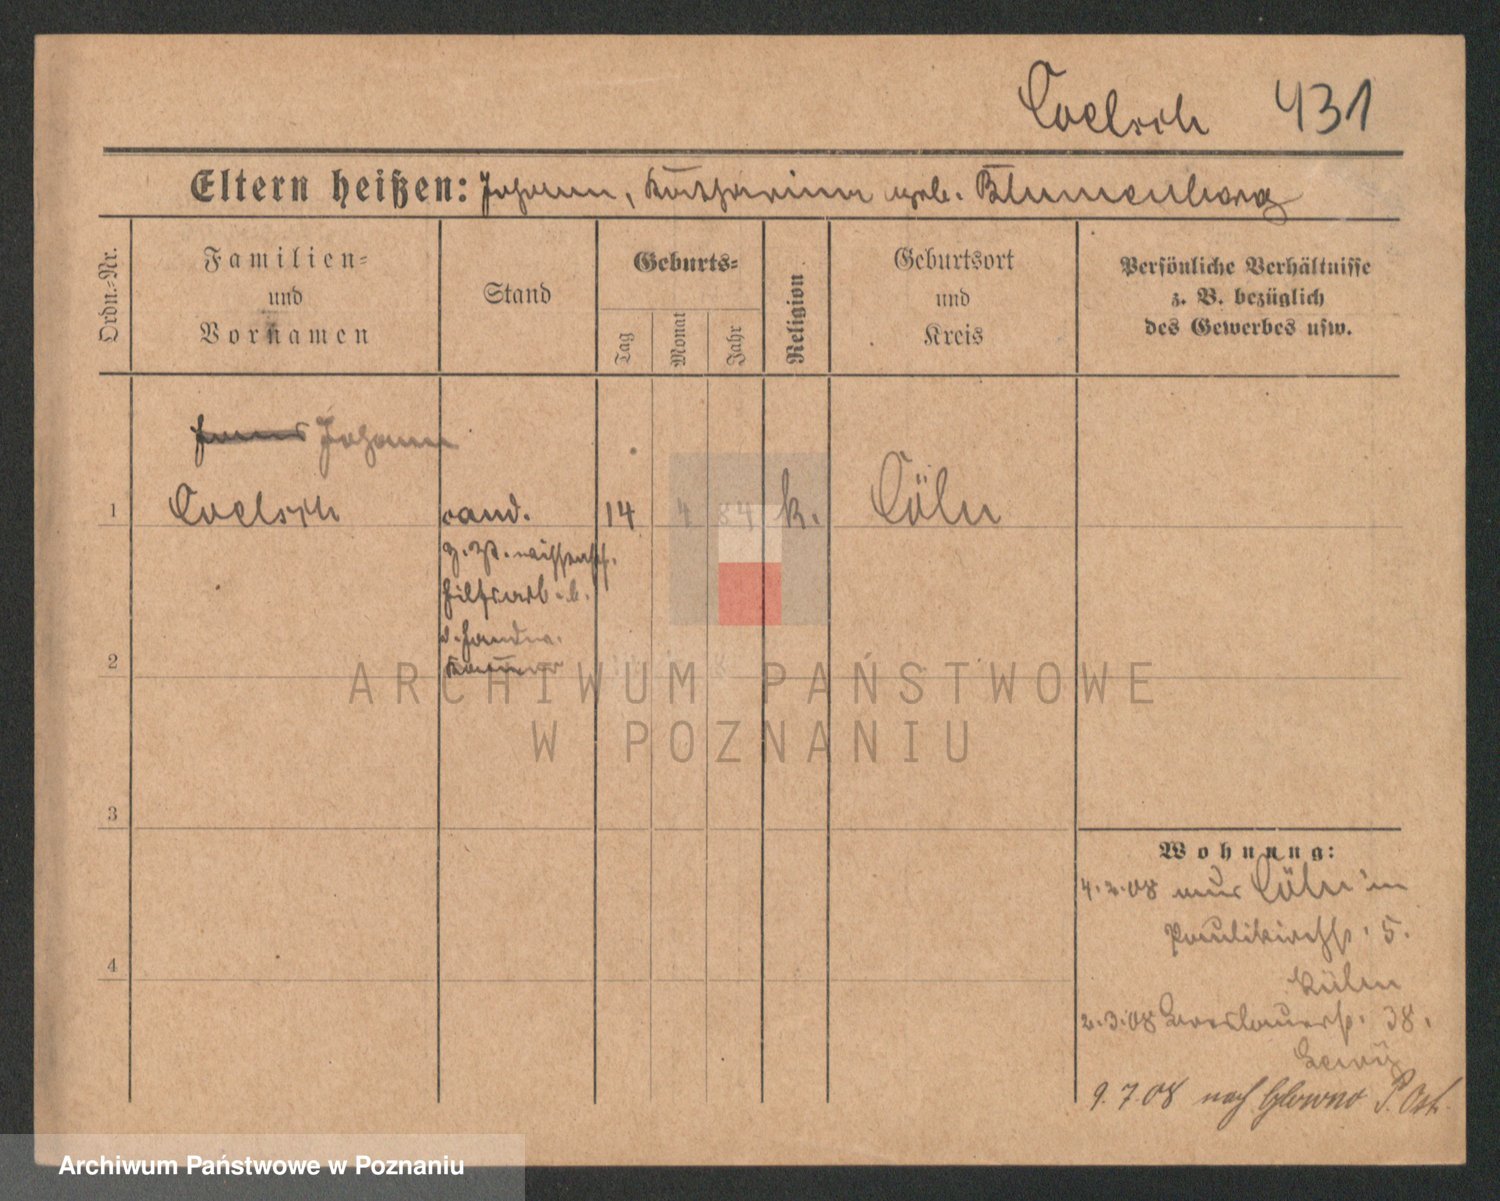 Coelsch 431
Eltern heißen: Johann, Katharina geb. Blumenberg
Ordn.-Nr.
Familien-
und
Vornamen
Stand
Geburts-
Tag
Monat
Jahr
Religion
Geburtsort
und
Kreis
Persönliche Verhältnisse
z. B. bezüglich
des Gewerbes usw.
Hans Johann
1 Coelsch cand. 14 4 84 k. Cöln
z. Zt. wissensch.
Hilfsarb. b.
d. Handw.
2 Kammer
ARCHIWUM PAŃSTWOWE
W POZNANIU
3
Wohnung:
4.2.08 aus Cöln in
Paulikirchstr. 5.
4
2.3.08 Breslauerstr. 38.
9.7.08 nach Glowno P. Ost.
Archiwum Państwowe w Poznaniu